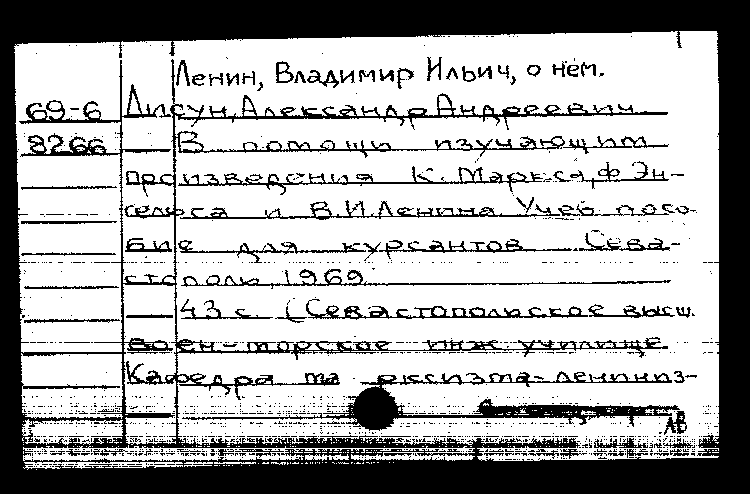 Ленин, Владимир Ильич, о нём.
69-6 Лисун, Александр Андреевич
8266 В помощь изучающим
произведения К. Маркса, Ф. Эн-
гельса и В.И. Ленина. Учеб. посо-
бие для курсантов. Сева-
стополь, 1969
43 с. (Севастопольское высш.
воен-морское инж. училище
Кафедра марксизма-лениниз-
ЛВ